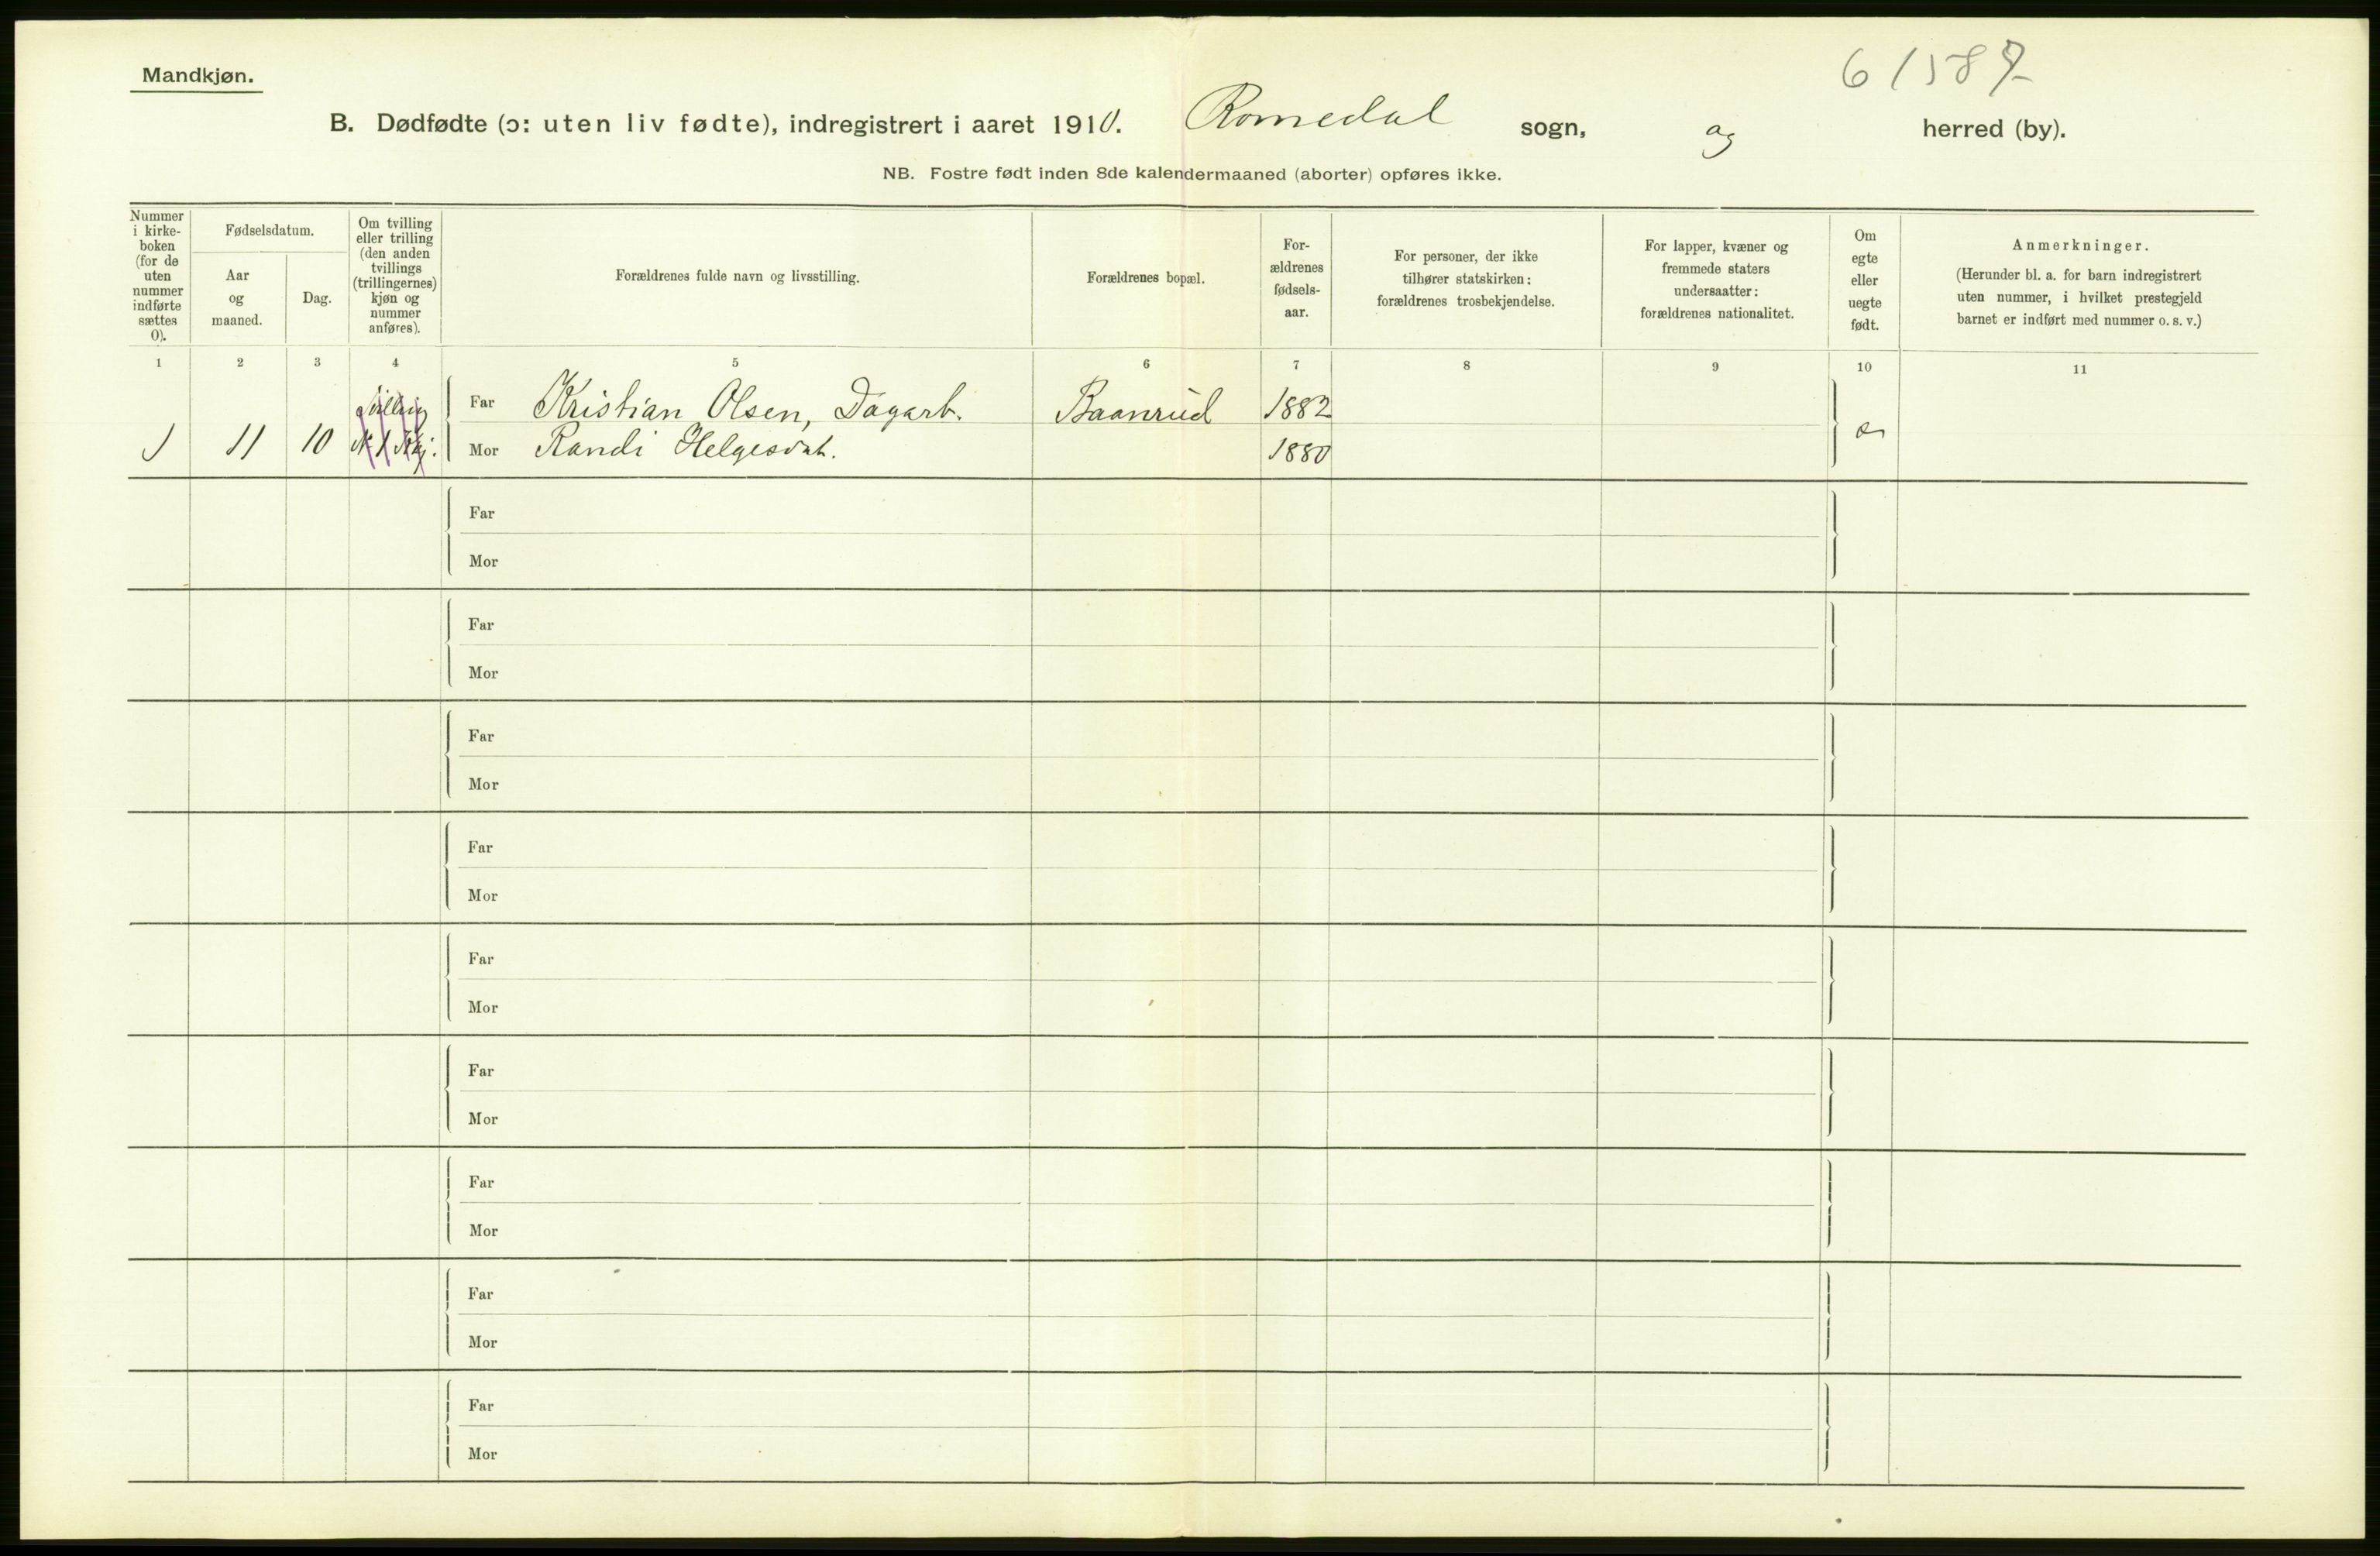 Mandkjøn.
6 1587
B. Dødfødte (ɔ: uten liv fødte), indregistrert i aaret 1910. Romedal sogn, og herred (by).
NB. Fostre født inden 8de kalendermaaned (aborter) opføres ikke.
Nummer i kirke- boken (for de uten nummer indførte sættes 0).
Fødselsdatum.
Aar og maaned.
Dag.
Om tvilling eller trilling (den anden tvillings (trillingernes) kjøn og nummer anføres).
Forældrenes fulde navn og livsstilling.
Forældrenes bopæl.
For- ældrenes fødsels- aar.
For personer, der ikke tilhører statskirken: forældrenes trosbekjendelse.
For lapper, kvæner og fremmede staters undersaatter: forældrenes nationalitet.
Om egte eller uegte født.
Anmerkninger.
(Herunder bl. a. for barn indregistrert uten nummer, i hvilket prestegjeld barnet er indført med nummer o. s. v.)
1 2 3 4 5 6 7 8 9 10 11
Tvilling Far Kristian Olsen, Dagarb. Baanrud 1882
1 11 10 Mor Randi Helgesdat. 1880 e
Far
Mor
Far
Mor
Far
Mor
Far
Mor
Far
Mor
Far
Mor
Far
Mor
Far
Mor
Far
Mor